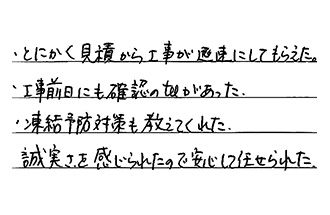 ・とにかく見積から工事が迅速にしてもらえた。
・工事前日にも確認のtelがあった.
・凍結予防対策も教えてくれた.
誠実さを感じられたので安心して任せられた.